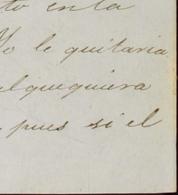 to en la
Yo le quitaria
elquequiera
pues si el